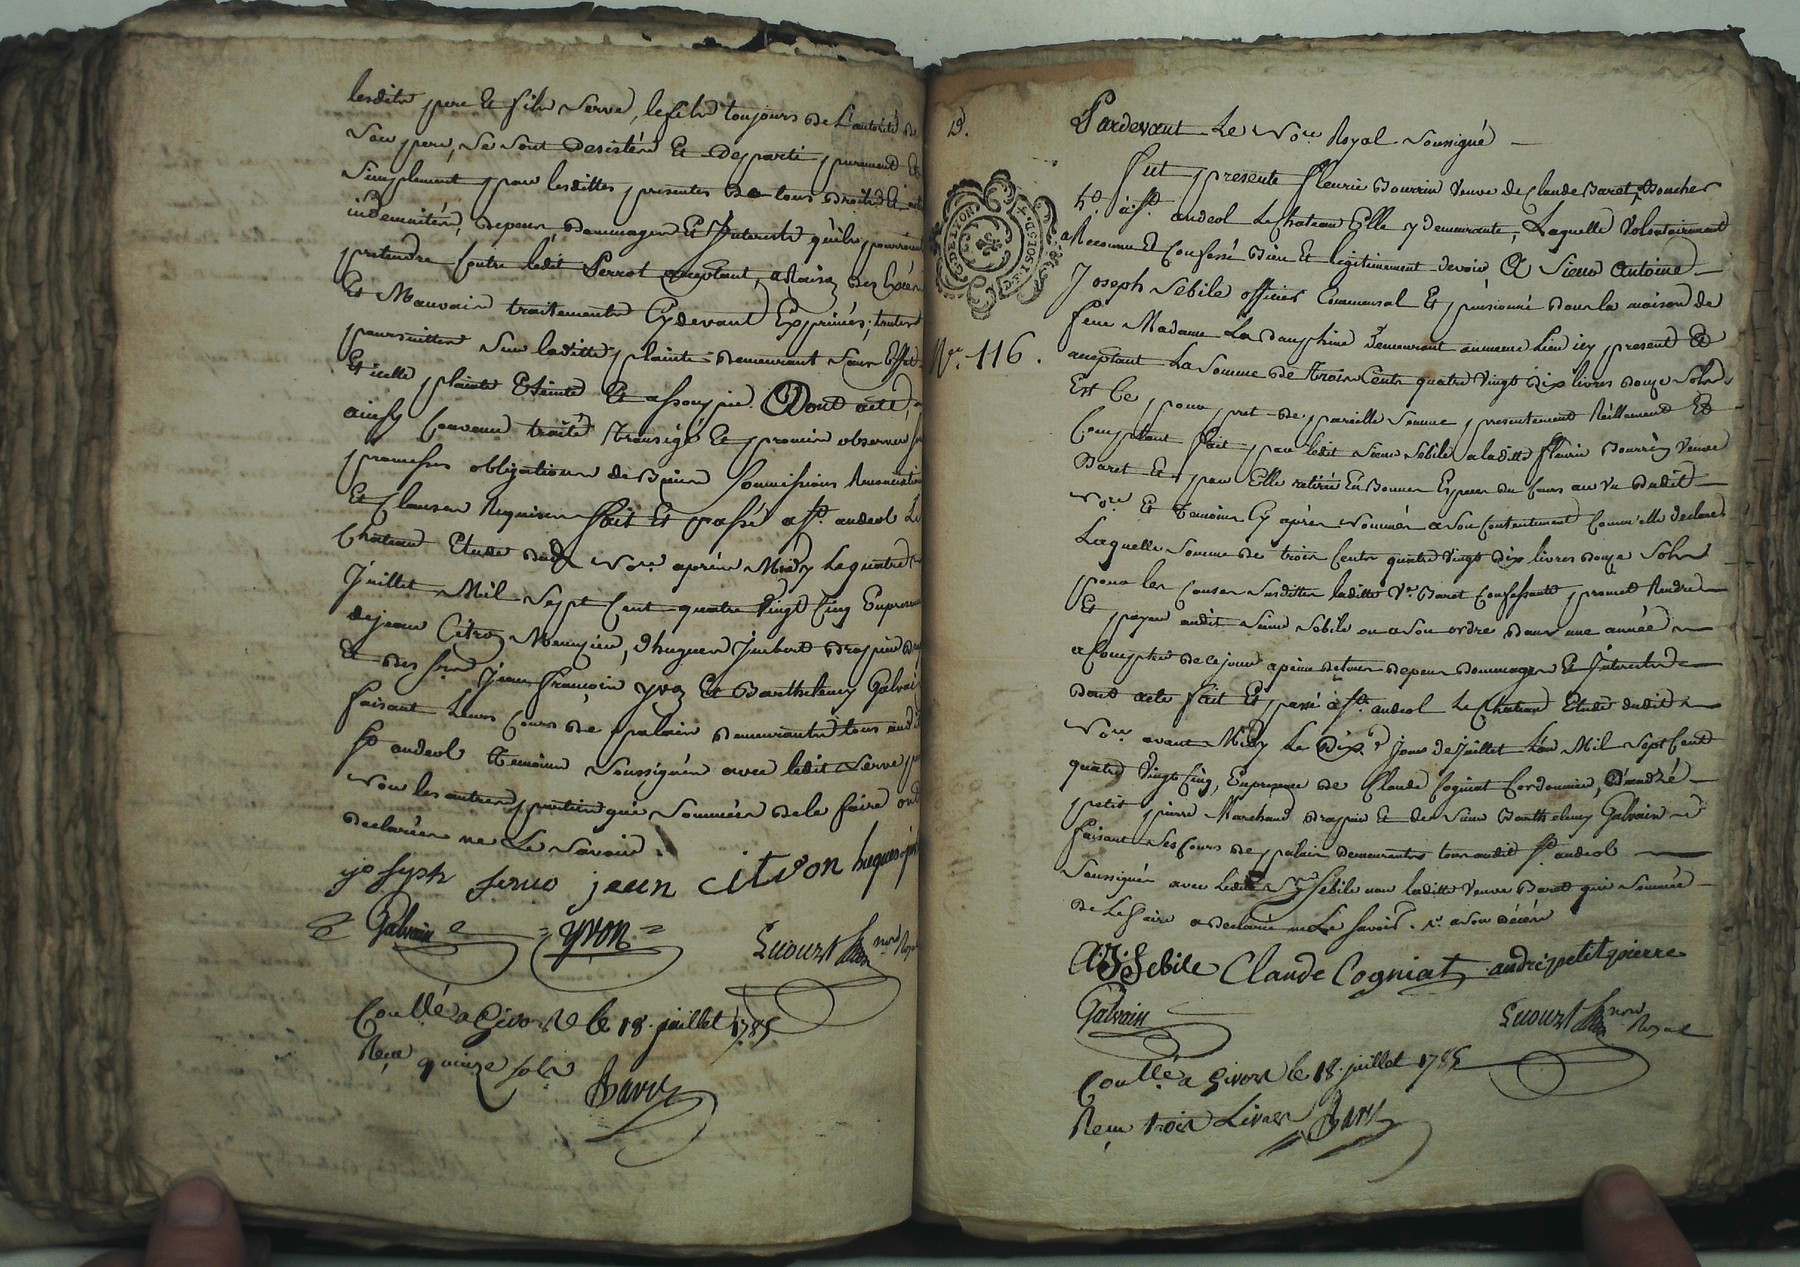 lesdits pere Et fils Serve, le fils toujours de L'autorité de
Son pere, se sont desistés Et departi purement Et
Simplement par lesdittes presentes de tous droits
indemnités, depens, dommages Et Interests qu'ils pourroient
pretendre Contre ledit Perrot acceptant, a Raison des Excés
Et Mauvais traitements Cydevant Exprimés; toutes
poursuittes sur laditte plainte demeurant sans Effet
Et icelle plainte Eteinte Et assoupie. Dont acte,
ainsy Convenu traité transigé Et promis observer
promesses obligations de Biens Soumissions Renonciations
Et Clauses Requises fait Et passé a St. andeol Le
Chateau Etude dudt Nore. aprés Midy Le quatre
Juillet Mil Sept Cent quatre Vingt Cinq En presence
de jean Citron Menuzier, d'hugues Jimbert drapier
Et des srs. Jean françois yvon Et Barthelemy Galvain
faisant Leurs Cours de palais demeurants tous audit
St. andeol temoins Soussignés avec ledit Serve
Non les autres parties qui Sommées de le faire ont
declarées ne Le Savoir.
joseph serve jean citron hugues
Galvain yvon
Luouzt nore Royal
Coullé a Givors le 18 juillet 1785
Reçu quinze sols
Bavry
B.
G. DE LYON
N°. 116.
Pardevant Le Nore. Royal Soussigné
fut presente fleurie Bourrin Veuve de Claude Baret, Boucher
ht. à St. andeol Le Chateau Elle y demeurante, Laquelle Volontairement
a Reconnu Et Confessé Bien Et legitimement devoir A Sieur Antoine
Joseph Sebile officier Commensal Et pensionné dans la maison de
feue Madame La dauphine demeurant au meme Lieu icy present Et
acceptant La Somme de trois Cents quatre Vingt Dix livres douze Sols
Est Ce pour pret de pareille Somme presentement Réellement Et
Comptant fait par ledit Sieur Sebile a laditte fleurie Bourrin Veuve
Baret Et par Elle retirée En Bonnes Especes du Cours au Vu dudit
Nore. Et temoins Cy aprés Nommés a son Contentement Comm'elle declare
Laquelle Somme de trois Cents quatre Vingt Dix livres douze Sols
pour les Causes Susdittes laditte Ve. Baret Confessante promet Rendre
Et payer audit Sieur Sebile ou a Son ordre dans une année
a Compter de ce jour a peine de tous depens dommages Et Interests
dont acte fait Et passé à St. andeol Le Chateau Etude dudit
Nore. avant Midy Le Dix.e jour de Juillet L'an Mil Sept Cent
quatre Vingt Cinq, En presence de Claude Cogniat Cordonnier, D'andré
petit pierre Marchand drapier Et de Sieur Barthelemy Galvain
faisant Ses Cours de palais demeurants tous audit St. andeol
Soussignés avec Ledit Sr. Sebile non laditte Veuve Baret qui Sommée
de Le faire a declarée ne Le Savoir.
A. J. Sebile Claude Cogniat andré petit pierre
Galvain Luouzt nore Royal
Coullé. a Givors le 18. juillet 1785
Reçu trois Livres Bavry